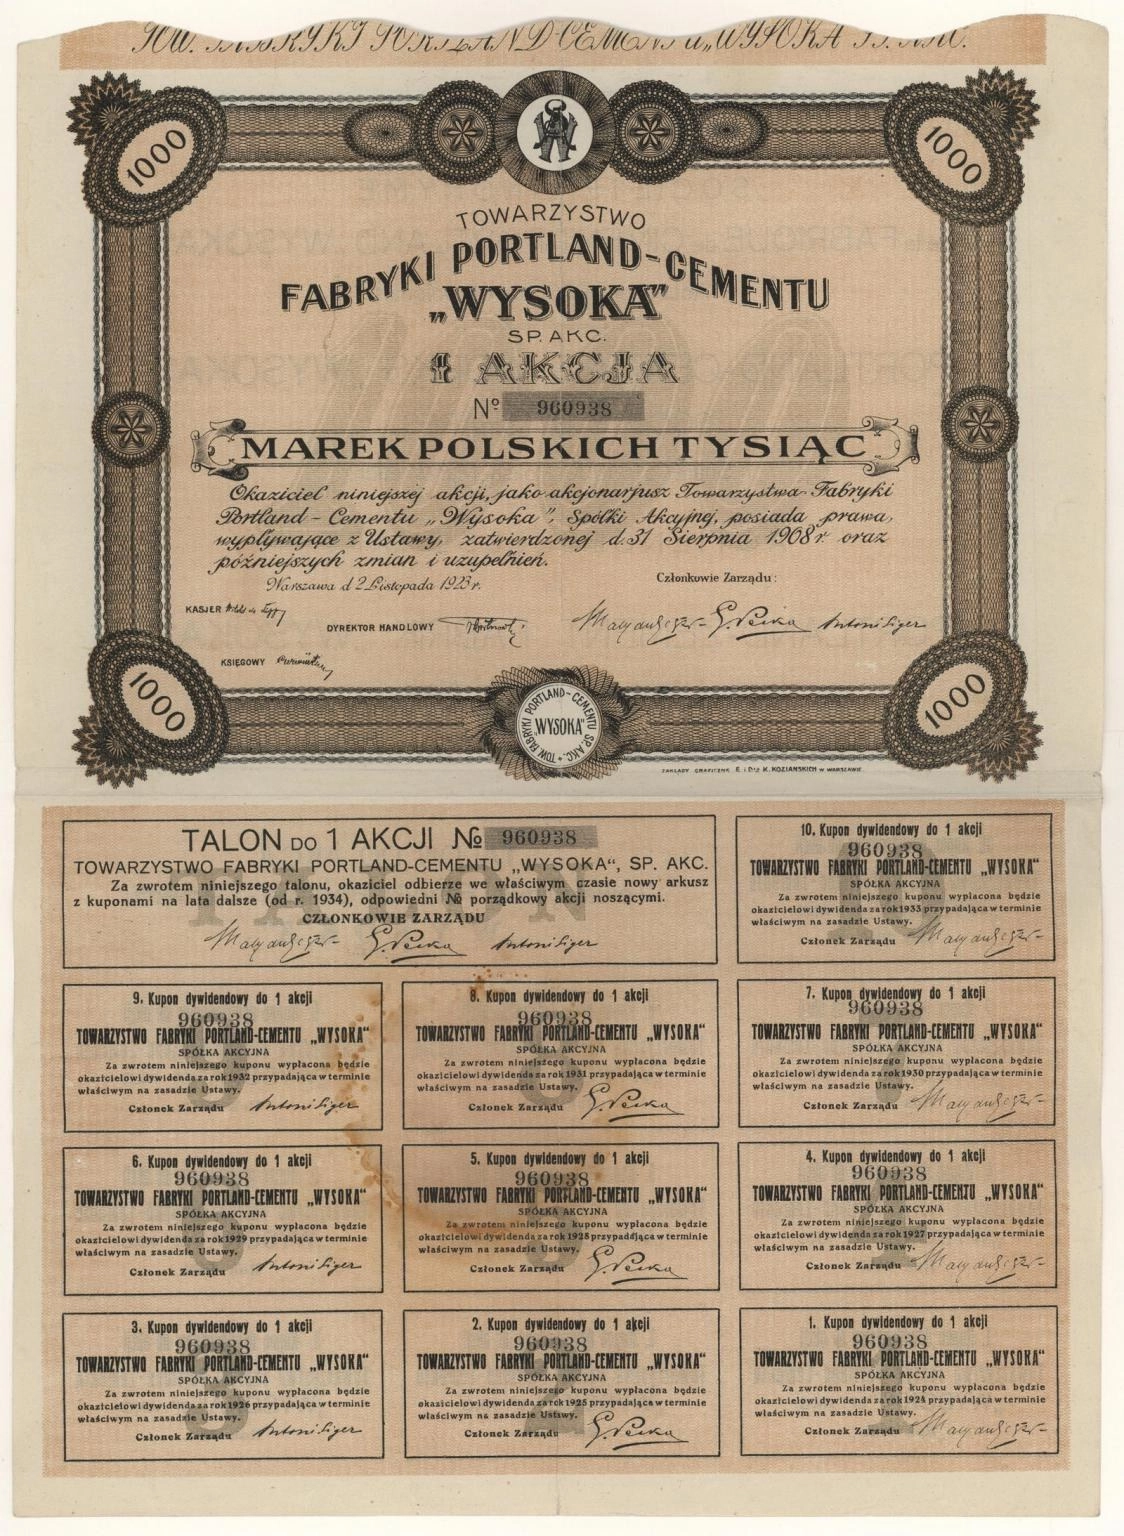 TOW. FABRYKI PORTLAND-CEMENTU „WYSOKA" SP. AKC.
1000
1000
TOWARZYSTWO
FABRYKI PORTLAND-CEMENTU
„WYSOKA"
SP. AKC.
1 AKCJA
No 960938
MAREK POLSKICH TYSIĄC
Okaziciel niniejszej akcji, jako akcjonarjusz Towarzystwa Fabryki
Portland-Cementu „Wysoka", Spółki Akcyjnej, posiada prawa,
wypływające z Ustawy, zatwierdzonej d. 31 Sierpnia 1908 r. oraz
późniejszych zmian i uzupełnień.
Warszawa d 2 Listopada 1923 r.
Członkowie Zarządu:
KASJER
DYREKTOR HANDLOWY
Antoni Eiger
KSIĘGOWY
1000
1000
TOW. FABRYKI PORTLAND-CEMENTU SP. AKC.
„WYSOKA"
ZAKŁADY GRAFICZNE E. i Dra K. KOZIAŃSKICH w WARSZAWIE.
TALON DO 1 AKCJI № 960938
TOWARZYSTWO FABRYKI PORTLAND-CEMENTU „WYSOKA", SP. AKC.
Za zwrotem niniejszego talonu, okaziciel odbierze we właściwym czasie nowy arkusz
z kuponami na lata dalsze (od r. 1934), odpowiedni № porządkowy akcji noszącymi.
CZŁONKOWIE ZARZĄDU
Antoni Eiger
10. Kupon dywidendowy do 1 akcji
960938
TOWARZYSTWO FABRYKI PORTLAND-CEMENTU „WYSOKA"
SPÓŁKA AKCYJNA
Za zwrotem niniejszego kuponu wypłacona będzie
okazicielowi dywidenda za rok 1933 przypadająca w terminie
właściwym na zasadzie Ustawy.
Członek Zarządu
9. Kupon dywidendowy do 1 akcji
960938
TOWARZYSTWO FABRYKI PORTLAND-CEMENTU „WYSOKA"
SPÓŁKA AKCYJNA
Za zwrotem niniejszego kuponu wypłacona będzie
okazicielowi dywidenda za rok 1932 przypadająca w terminie
właściwym na zasadzie Ustawy.
Członek Zarządu Antoni Eiger
8. Kupon dywidendowy do 1 akcji
960938
TOWARZYSTWO FABRYKI PORTLAND-CEMENTU „WYSOKA"
SPÓŁKA AKCYJNA
Za zwrotem niniejszego kuponu wypłacona będzie
okazicielowi dywidenda za rok 1931 przypadająca w terminie
właściwym na zasadzie Ustawy.
Członek Zarządu
7. Kupon dywidendowy do 1 akcji
960938
TOWARZYSTWO FABRYKI PORTLAND-CEMENTU „WYSOKA"
SPÓŁKA AKCYJNA
Za zwrotem niniejszego kuponu wypłacona będzie
okazicielowi dywidenda za rok 1930 przypadająca w terminie
właściwym na zasadzie Ustawy.
Członek Zarządu
6. Kupon dywidendowy do 1 akcji
960938
TOWARZYSTWO FABRYKI PORTLAND-CEMENTU „WYSOKA"
SPÓŁKA AKCYJNA
Za zwrotem niniejszego kuponu wypłacona będzie
okazicielowi dywidenda za rok 1929 przypadająca w terminie
właściwym na zasadzie Ustawy.
Członek Zarządu Antoni Eiger
5. Kupon dywidendowy do 1 akcji
960938
TOWARZYSTWO FABRYKI PORTLAND-CEMENTU „WYSOKA"
SPÓŁKA AKCYJNA
Za zwrotem niniejszego kuponu wypłacona będzie
okazicielowi dywidenda za rok 1928 przypadająca w terminie
właściwym na zasadzie Ustawy.
Członek Zarządu
4. Kupon dywidendowy do 1 akcji
960938
TOWARZYSTWO FABRYKI PORTLAND-CEMENTU „WYSOKA"
SPÓŁKA AKCYJNA
Za zwrotem niniejszego kuponu wypłacona będzie
okazicielowi dywidenda za rok 1927 przypadająca w terminie
właściwym na zasadzie Ustawy.
Członek Zarządu
3. Kupon dywidendowy do 1 akcji
960938
TOWARZYSTWO FABRYKI PORTLAND-CEMENTU „WYSOKA"
SPÓŁKA AKCYJNA
Za zwrotem niniejszego kuponu wypłacona będzie
okazicielowi dywidenda za rok 1926 przypadająca w terminie
właściwym na zasadzie Ustawy.
Członek Zarządu Antoni Eiger
2. Kupon dywidendowy do 1 akcji
960938
TOWARZYSTWO FABRYKI PORTLAND-CEMENTU „WYSOKA"
SPÓŁKA AKCYJNA
Za zwrotem niniejszego kuponu wypłacona będzie
okazicielowi dywidenda za rok 1925 przypadająca w terminie
właściwym na zasadzie Ustawy.
Członek Zarządu
1. Kupon dywidendowy do 1 akcji
960938
TOWARZYSTWO FABRYKI PORTLAND-CEMENTU „WYSOKA"
SPÓŁKA AKCYJNA
Za zwrotem niniejszego kuponu wypłacona będzie
okazicielowi dywidenda za rok 1924 przypadająca w terminie
właściwym na zasadzie Ustawy.
Członek Zarządu